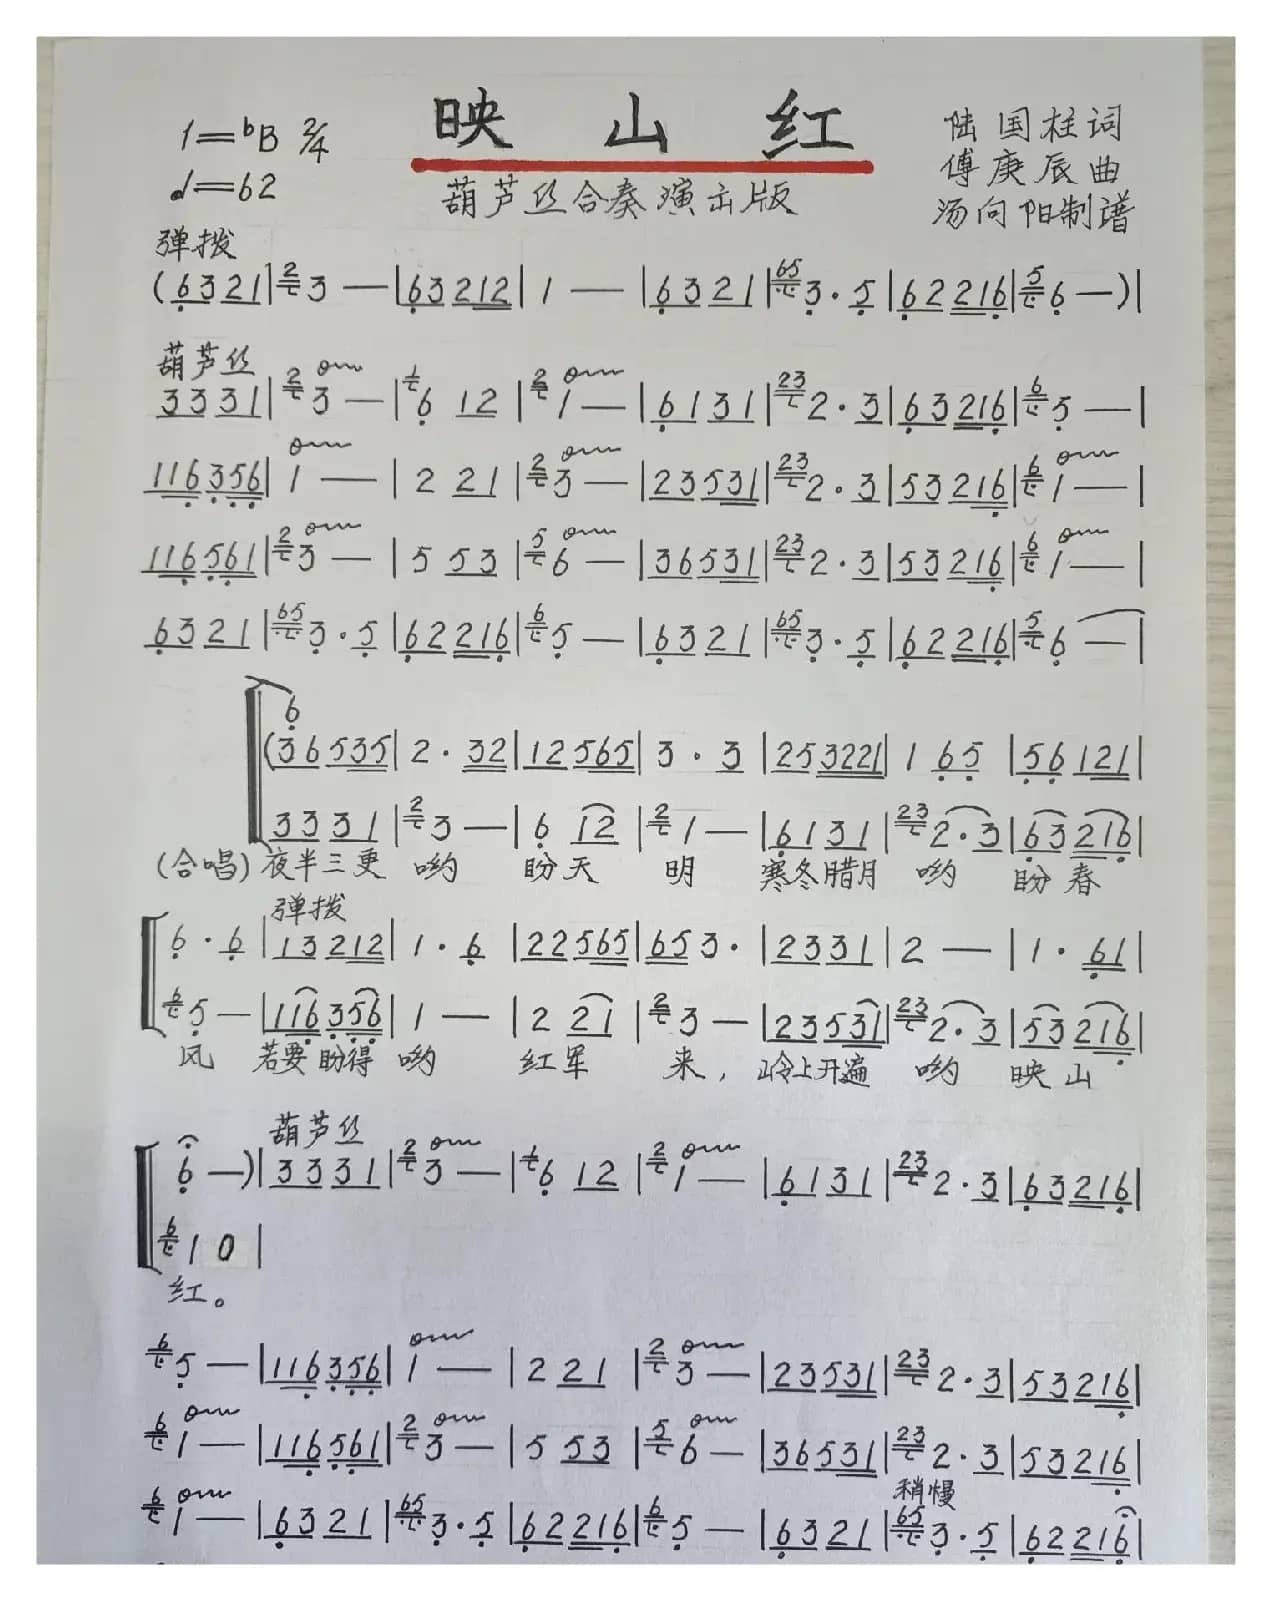 映山红
1=♭B 2/4
♩=62
葫芦丝合奏演出版
陆国柱词
傅庚辰曲
汤向阳制谱
弹拨
(6321|3—|63212|1—|6321|3·5|62216|6—)|
葫芦丝
3331|3—|6 12|1—|6131|2·3|63216|5—|
116356|1—|2 21|3—|23531|2·3|53216|1—|
116561|3—|5 53|6—|36531|2·3|53216|1—|
6321|3·5|62216|5—|6321|3·5|62216|6—|
6
(36535|2·32|12565|3·3|253221|1 65|56121|
3331|3—|6 12|1—|6131|2·3|63216|
(合唱)夜半三更 哟 盼天 明 寒冬腊月 哟 盼春
弹拨
6·6|13212|1·6|22565|653·|2331|2—|1·61|
5—|116356|1—|2 21|3—|23531|2·3|53216|
风 若要盼得 哟 红军 来, 岭上开遍 哟 映山
葫芦丝
6—)|3331|3—|6 12|1—|6131|2·3|63216|
1 0|
红。
5—|116356|1—|2 21|3—|23531|2·3|53216|
1—|116561|3—|5 53|6—|36531|2·3|53216|
稍慢
1—|6321|3·5|62216|5—|6321|3·5|62216|